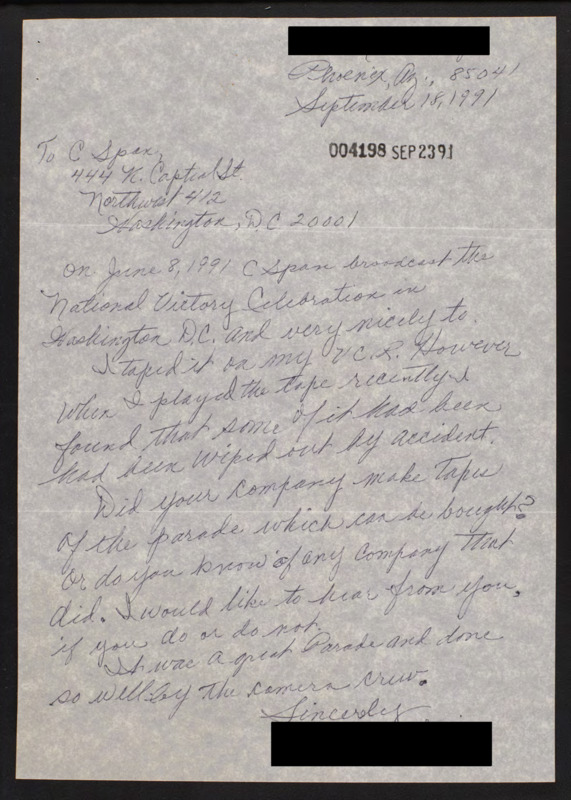 Phoenix, Az., 85041
September 18, 1991
004198 SEP 23 91
To C Span,
444 N. Captial St.
Northwest 412
Washington, D.C 20001
On June 8, 1991 C Span broadcast the
National Victory Celibration in
Washington D.C. and very nicely to.
I taped it on my V.C.R. However
when I played the tape recently I
found that some of it had been
had been wiped out by accident.
Did your company make Tapes
of the parade which can be bought?
Or do you know of any company that
did. I would like to hear from you,
if you do or do not.
It was a great Parade and done
so well by the camera crew.
Sincerly